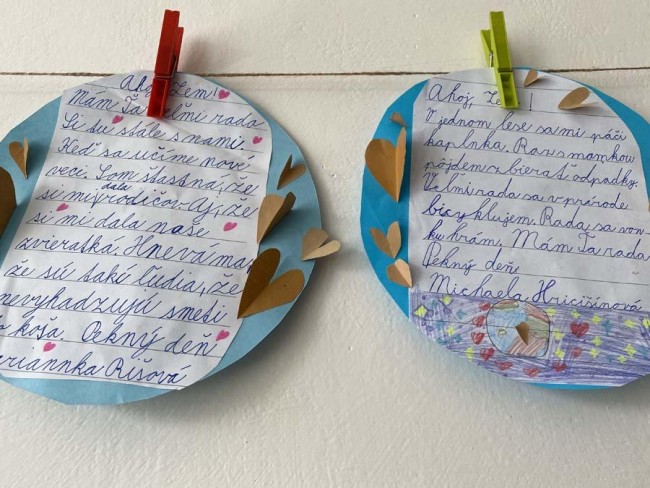 Ahoj Zem!
Mám Ťa veľmi rada
Si tu stále s nami.
Keď sa učíme nové
veci. Som šťastná, že
si mi dala rodičov. Aj, že
si mi dala naše
zvieratká. Hnevá ma,
že sú takí ľudia, že
nevyhadzujú smeti
do koša. Pekný deň
Rišová
Ahoj, Zem!
V jednom lese sa mi páči
kaplnka. Raz s mamkou
pôjdem zbierať odpadky.
Veľmi rada sa v prírode
bicyklujem. Rada sa von-
ku hrám. Mám Ťa rada
Pekný deň
Michaela Hricišinová